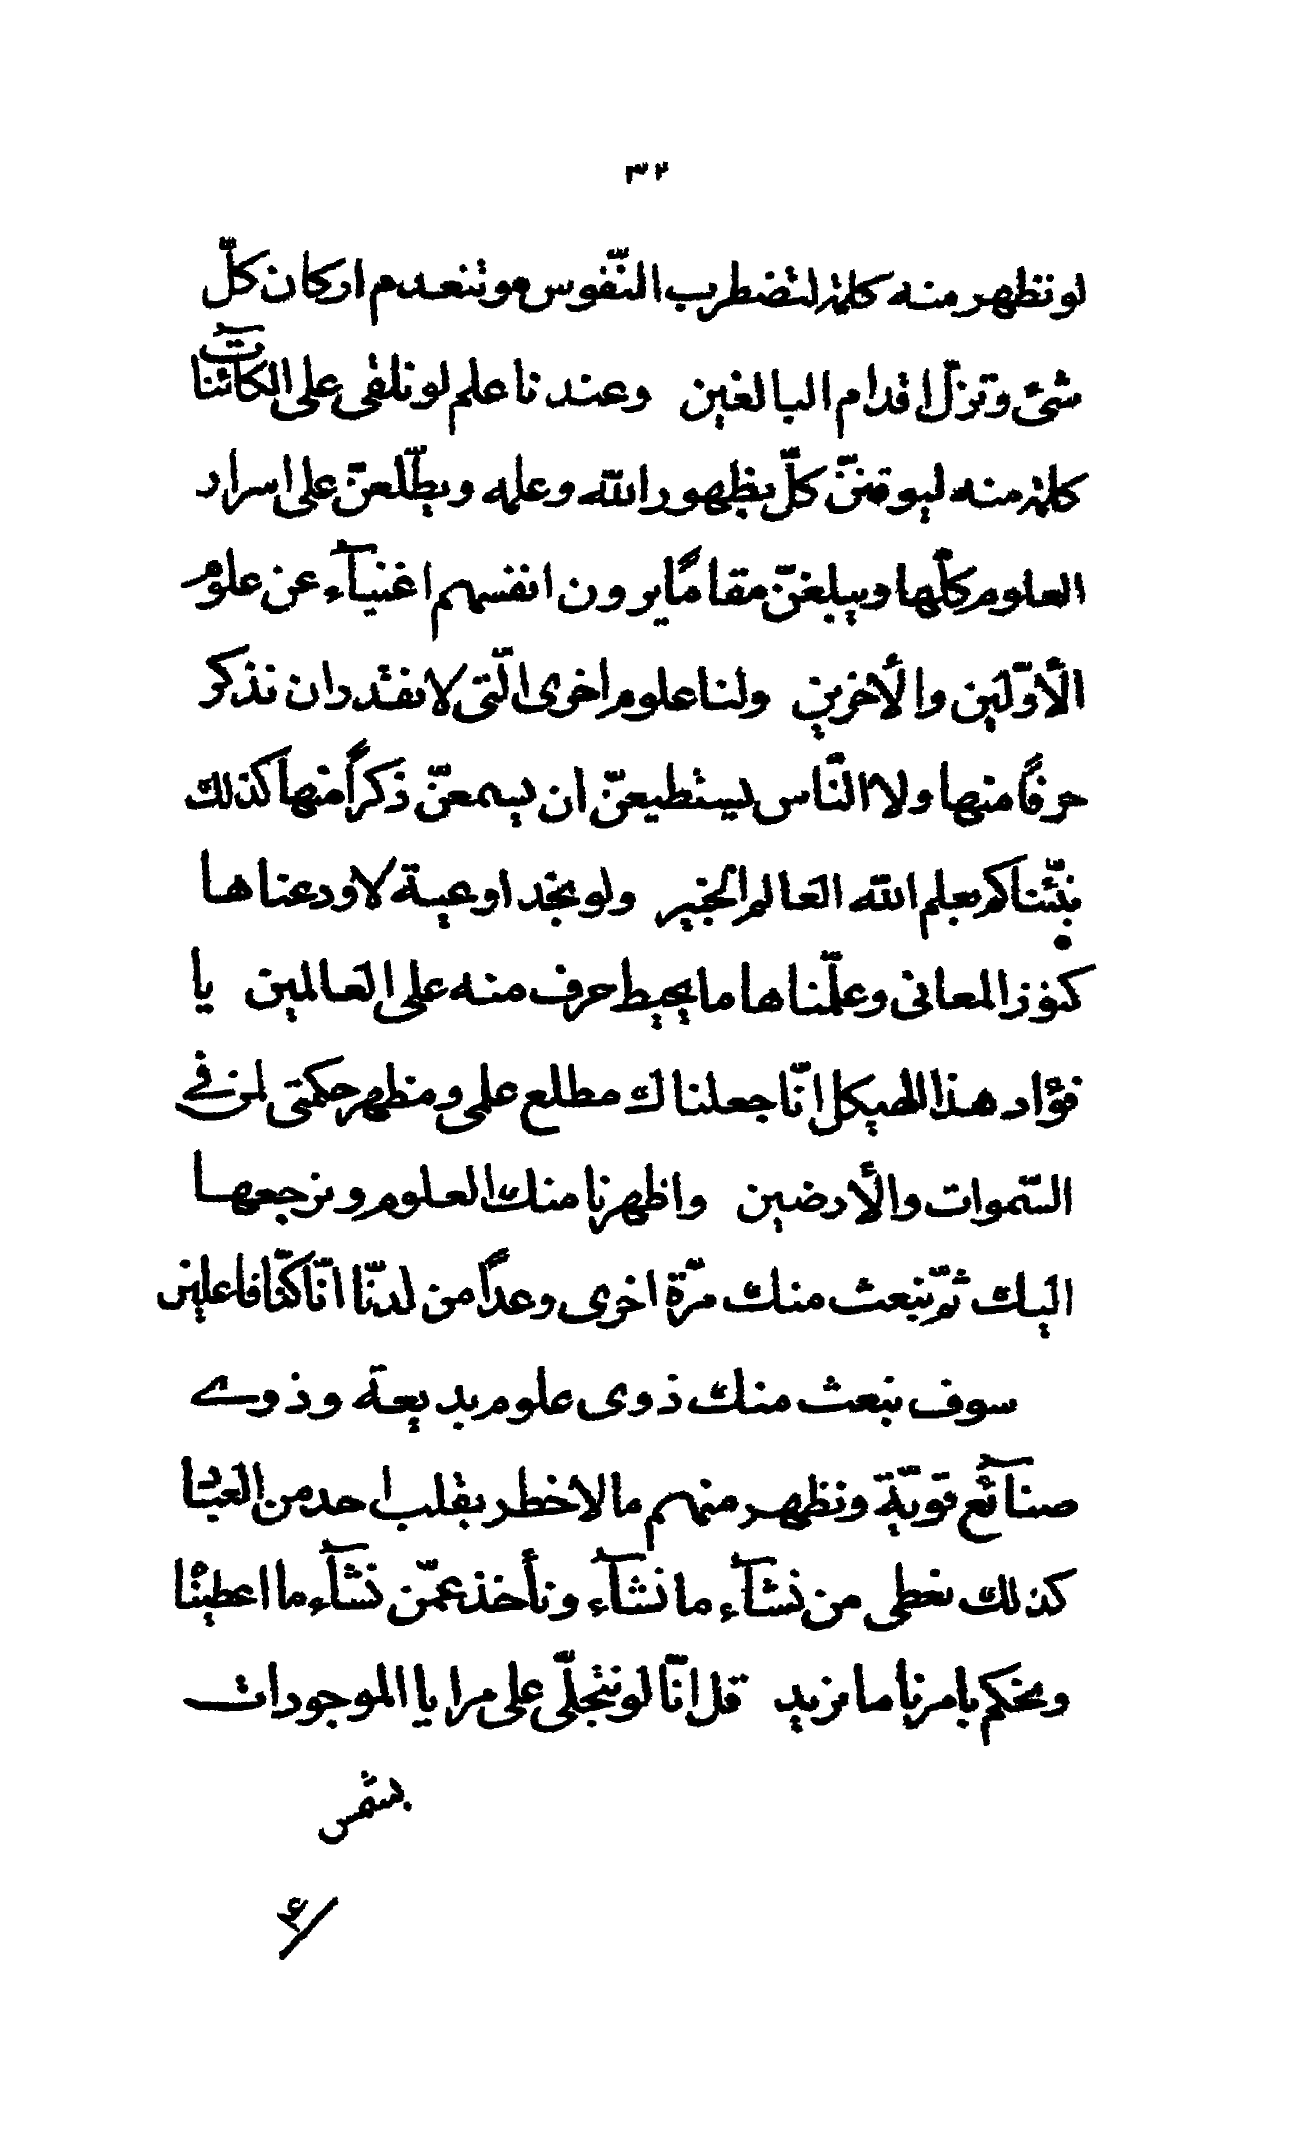 ٣٢
لو نظهر منه كلمة لتضطرب النّفوس و تنعدم اركان كلّ
شیء و تزلّ اقدام البالغين و عندنا علم لو نلقی علی الكآئنات
كلمة منه ليوقننّ كلّ بظهور الله و علمه و يطّلعنّ علی اسرار
العلوم كلّها و يبلغنّ مقامًا يرون انفسهم اغنيآء عن علوم
الأوّلين و الأخرين و لنا علوم اخری الّتی لا نقدر ان نذكر
حرفًا منها و لا النّاس يستطيعنّ ان يسمعنّ ذكراً منها كذلك
نبّئناكم بعلم الله العالم الخبير و لو نجد اوعية لاودعناها
كنوز المعانی و علّمناها ما يحيط حرف منه علی العالمين يا
فؤاد هذا الهيكل انّا جعلناك مطلع علمی و مظهر حكمتی لمن فے
السّموات و الأرضين و اظهرنا منك العلوم و نرجعها
اليك ثمّ نبعث منك مرّة اخری وعداً من لدنّا انّا كنّا فاعلين
سوف نبعث منك ذوی علوم بديعة و ذوے
صنآئع قويّة و نظهر منهم ما لا خطر بقلب احد من العباد
كذلك نعطی من نشآء ما نشآء و نأخذ عمّن نشآء ما اعطيناه
و نحكم بامرنا ما نريد قل انّا لو نتجلّی علی مرايا الموجودات
بشمس